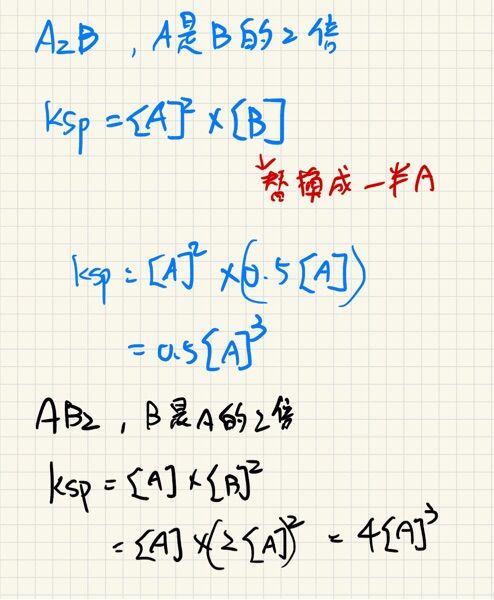 A₂B , A是B的2倍
Ksp = [A]² × [B]
替換成一半A
Ksp = [A]² × (0.5[A])
= 0.5[A]³
AB₂ , B是A的2倍
Ksp = [A] × [B]²
= [A] × (2[A])² = 4[A]³